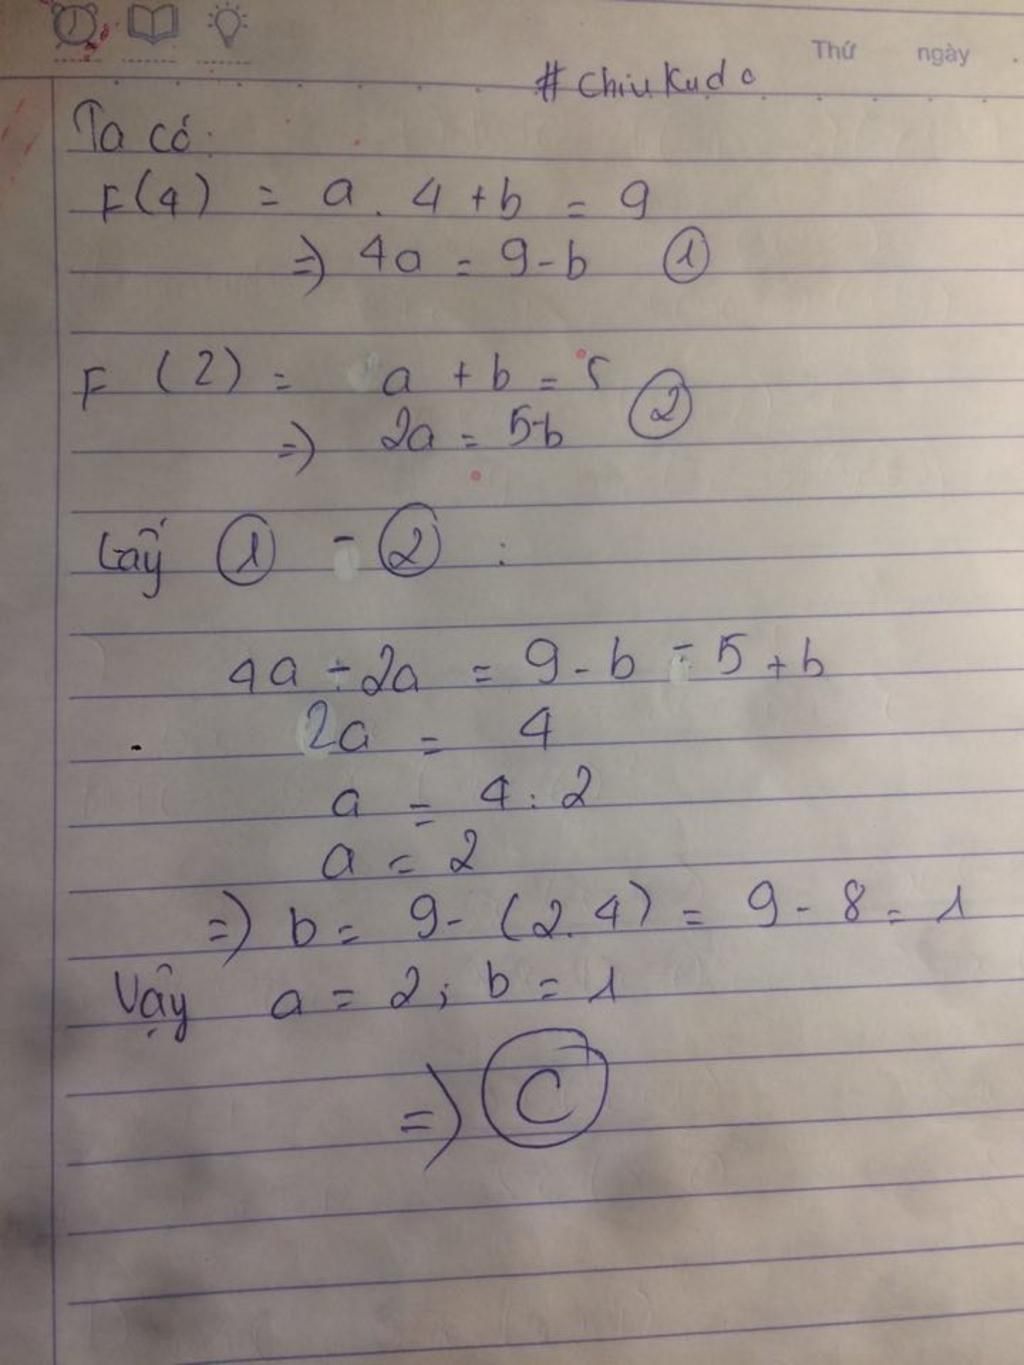 Thứ ngày
#ChiuKudo
Ta có:
F(4) = a . 4 + b = 9
=> 4a = 9 - b ①
F (2) = a + b = 5
=> 2a = 5-b ②
Lấy ① - ② :
4a - 2a = 9 - b - 5 + b
2a = 4
a = 4 : 2
a = 2
=> b = 9 - (2.4) = 9 - 8 = 1
Vậy a = 2; b = 1
=> C